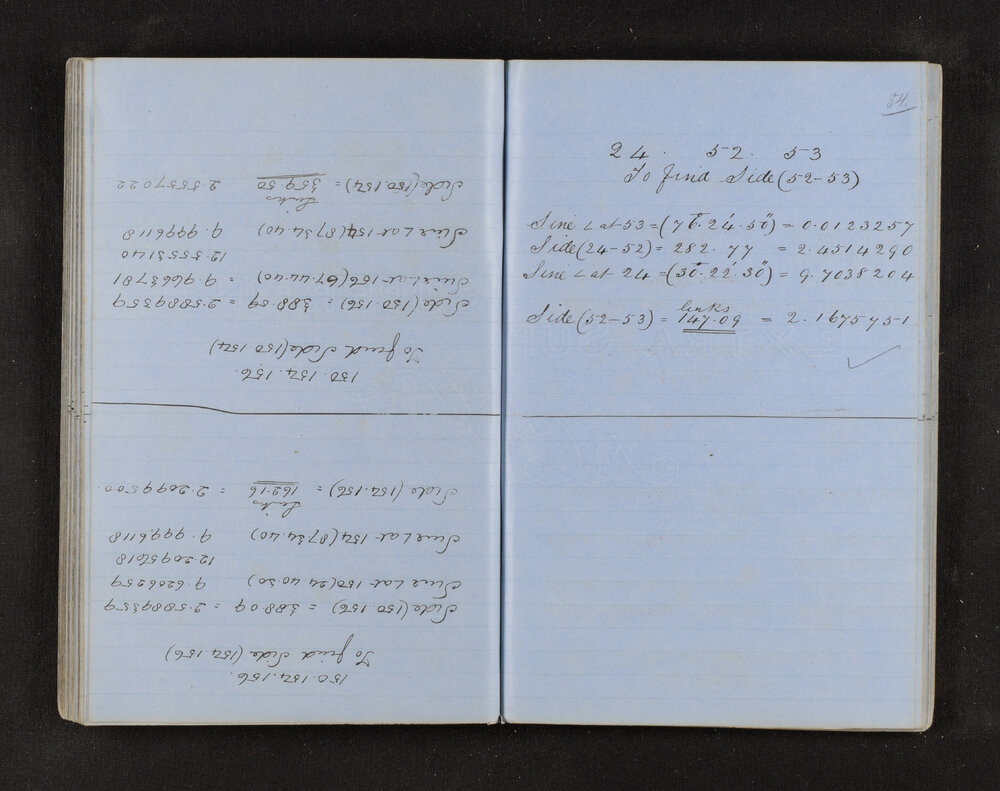 150.154.156.
To find Side (154.156)
Side (150.156) = 388.09 = 2.5889359
Sine ∠ at 150 (24.40.30) 9.6206259
12.2095618
Sine ∠ at 154 (87 34.40) 9.9996118
Links
Side (154.156) = 162.16 = 2.2099500
150.154.156.
To find Side (150.154)
Side (150 156) = 388.09 = 2.5889359
Sine ∠ at 156 (67.44.40) = 9.9663781
12.5553140
Sine ∠ at 154 (87 34.40) 9.9996118
Links
Side (150.154) = 359.50 2.5557022
54.
24. 52. 53
To find Side (52-53)
Sine ∠ at 53 = (76°.24'.50") = 0.0123257
Side (24-52) = 282.77 = 2.4514290
Sine ∠ at 24 = (30°.22'.30") = 9.7038204
links
Side (52-53) = 147.09 = 2.1675751